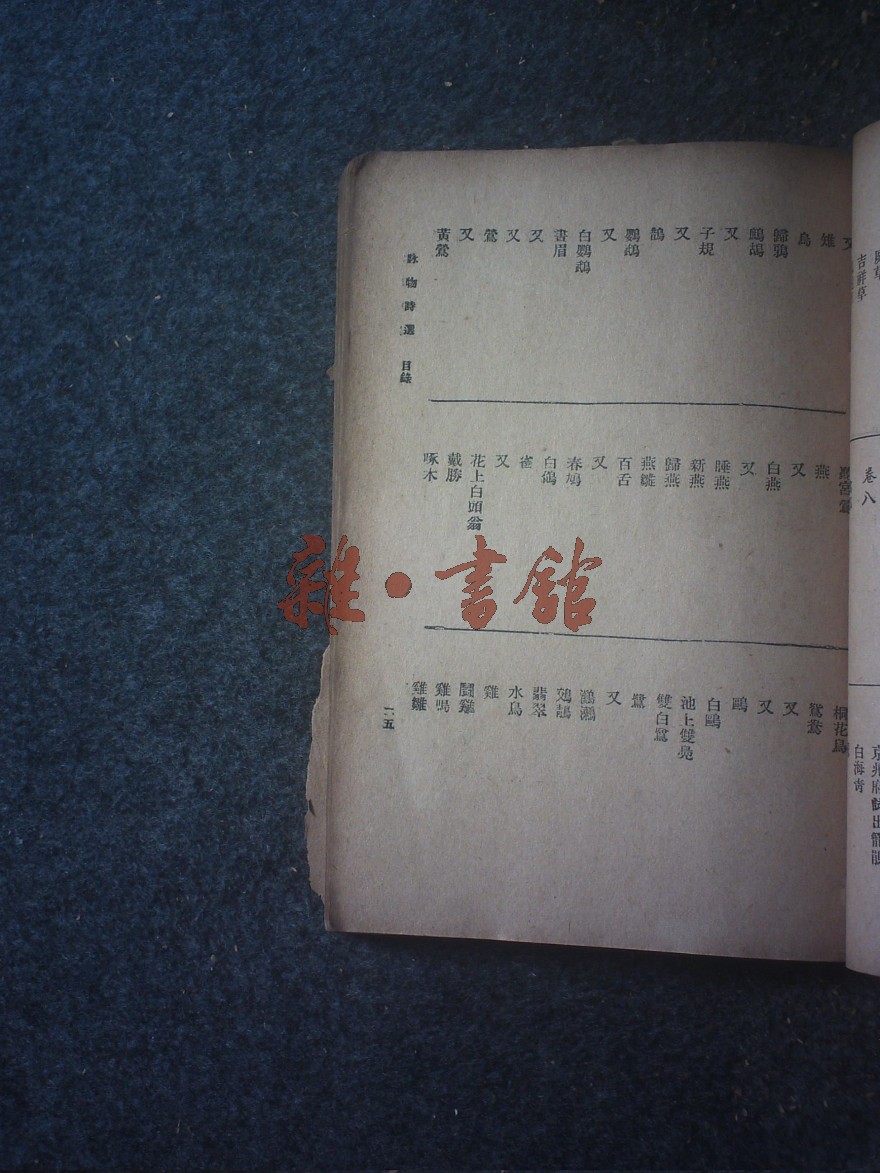 吉祥草
卷八
白海青
又
雉
烏
歸鴉
鷓鴣
又
子規
又
鵲
鸚鵡
又
白鸚鵡
畫眉
又
又
鶯
又
黃鶯
燕
又
白燕
又
睡燕
新燕
歸燕
燕雛
百舌
又
春鳩
白鷳
雀
又
花上白頭翁
戴勝
啄木
桐花鳥
鴛鴦
又
又
鷗
白鷗
池上雙鳧
雙白鷺
鷺
又
鸂鶒
鵁鶄
翡翠
水鳥
雞
鬭雞
雞鳴
雞雛
詠物詩選 目錄
一五
雜·書館